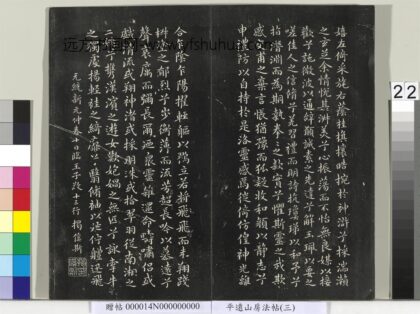 嬉左倚采旄右蔭桂旗攘皓腕於神滸兮採湍瀨
之玄芝余情悅其淑美兮心振蕩而不怡無良媒以接
歡兮託微波以通辭願誠素之先達兮解玉珮以要之
嗟佳人之信脩兮羌習禮而明詩抗瓊珶以和予兮
指潛淵而為期執拳拳之款實兮懼斯靈之我欺
感交甫之棄言悵猶豫而狐疑收和顏以靜志兮
申禮防以自持於是洛靈感焉徙倚仿偟神光離
合乍陰乍陽擢輕軀以鶴立若將飛而未翔踐
椒塗之郁烈兮步衡薄而流芳超長吟以慕遠兮
聲哀厲而彌長爾迺衆靈雜遝命疇嘯侶或
戲清流或翔神渚或採明珠或拾翠羽從南湘之
二妃兮攜漢濱之遊女歎匏媧之無匹兮詠牽牛
之獨處揚輕袿之綺靡兮翳脩袖以延佇體迅飛
元統新元仲春十日臨王子敬十三行 揭傒斯
22
贈帖 000014N000000000
平遠山房法帖(三)